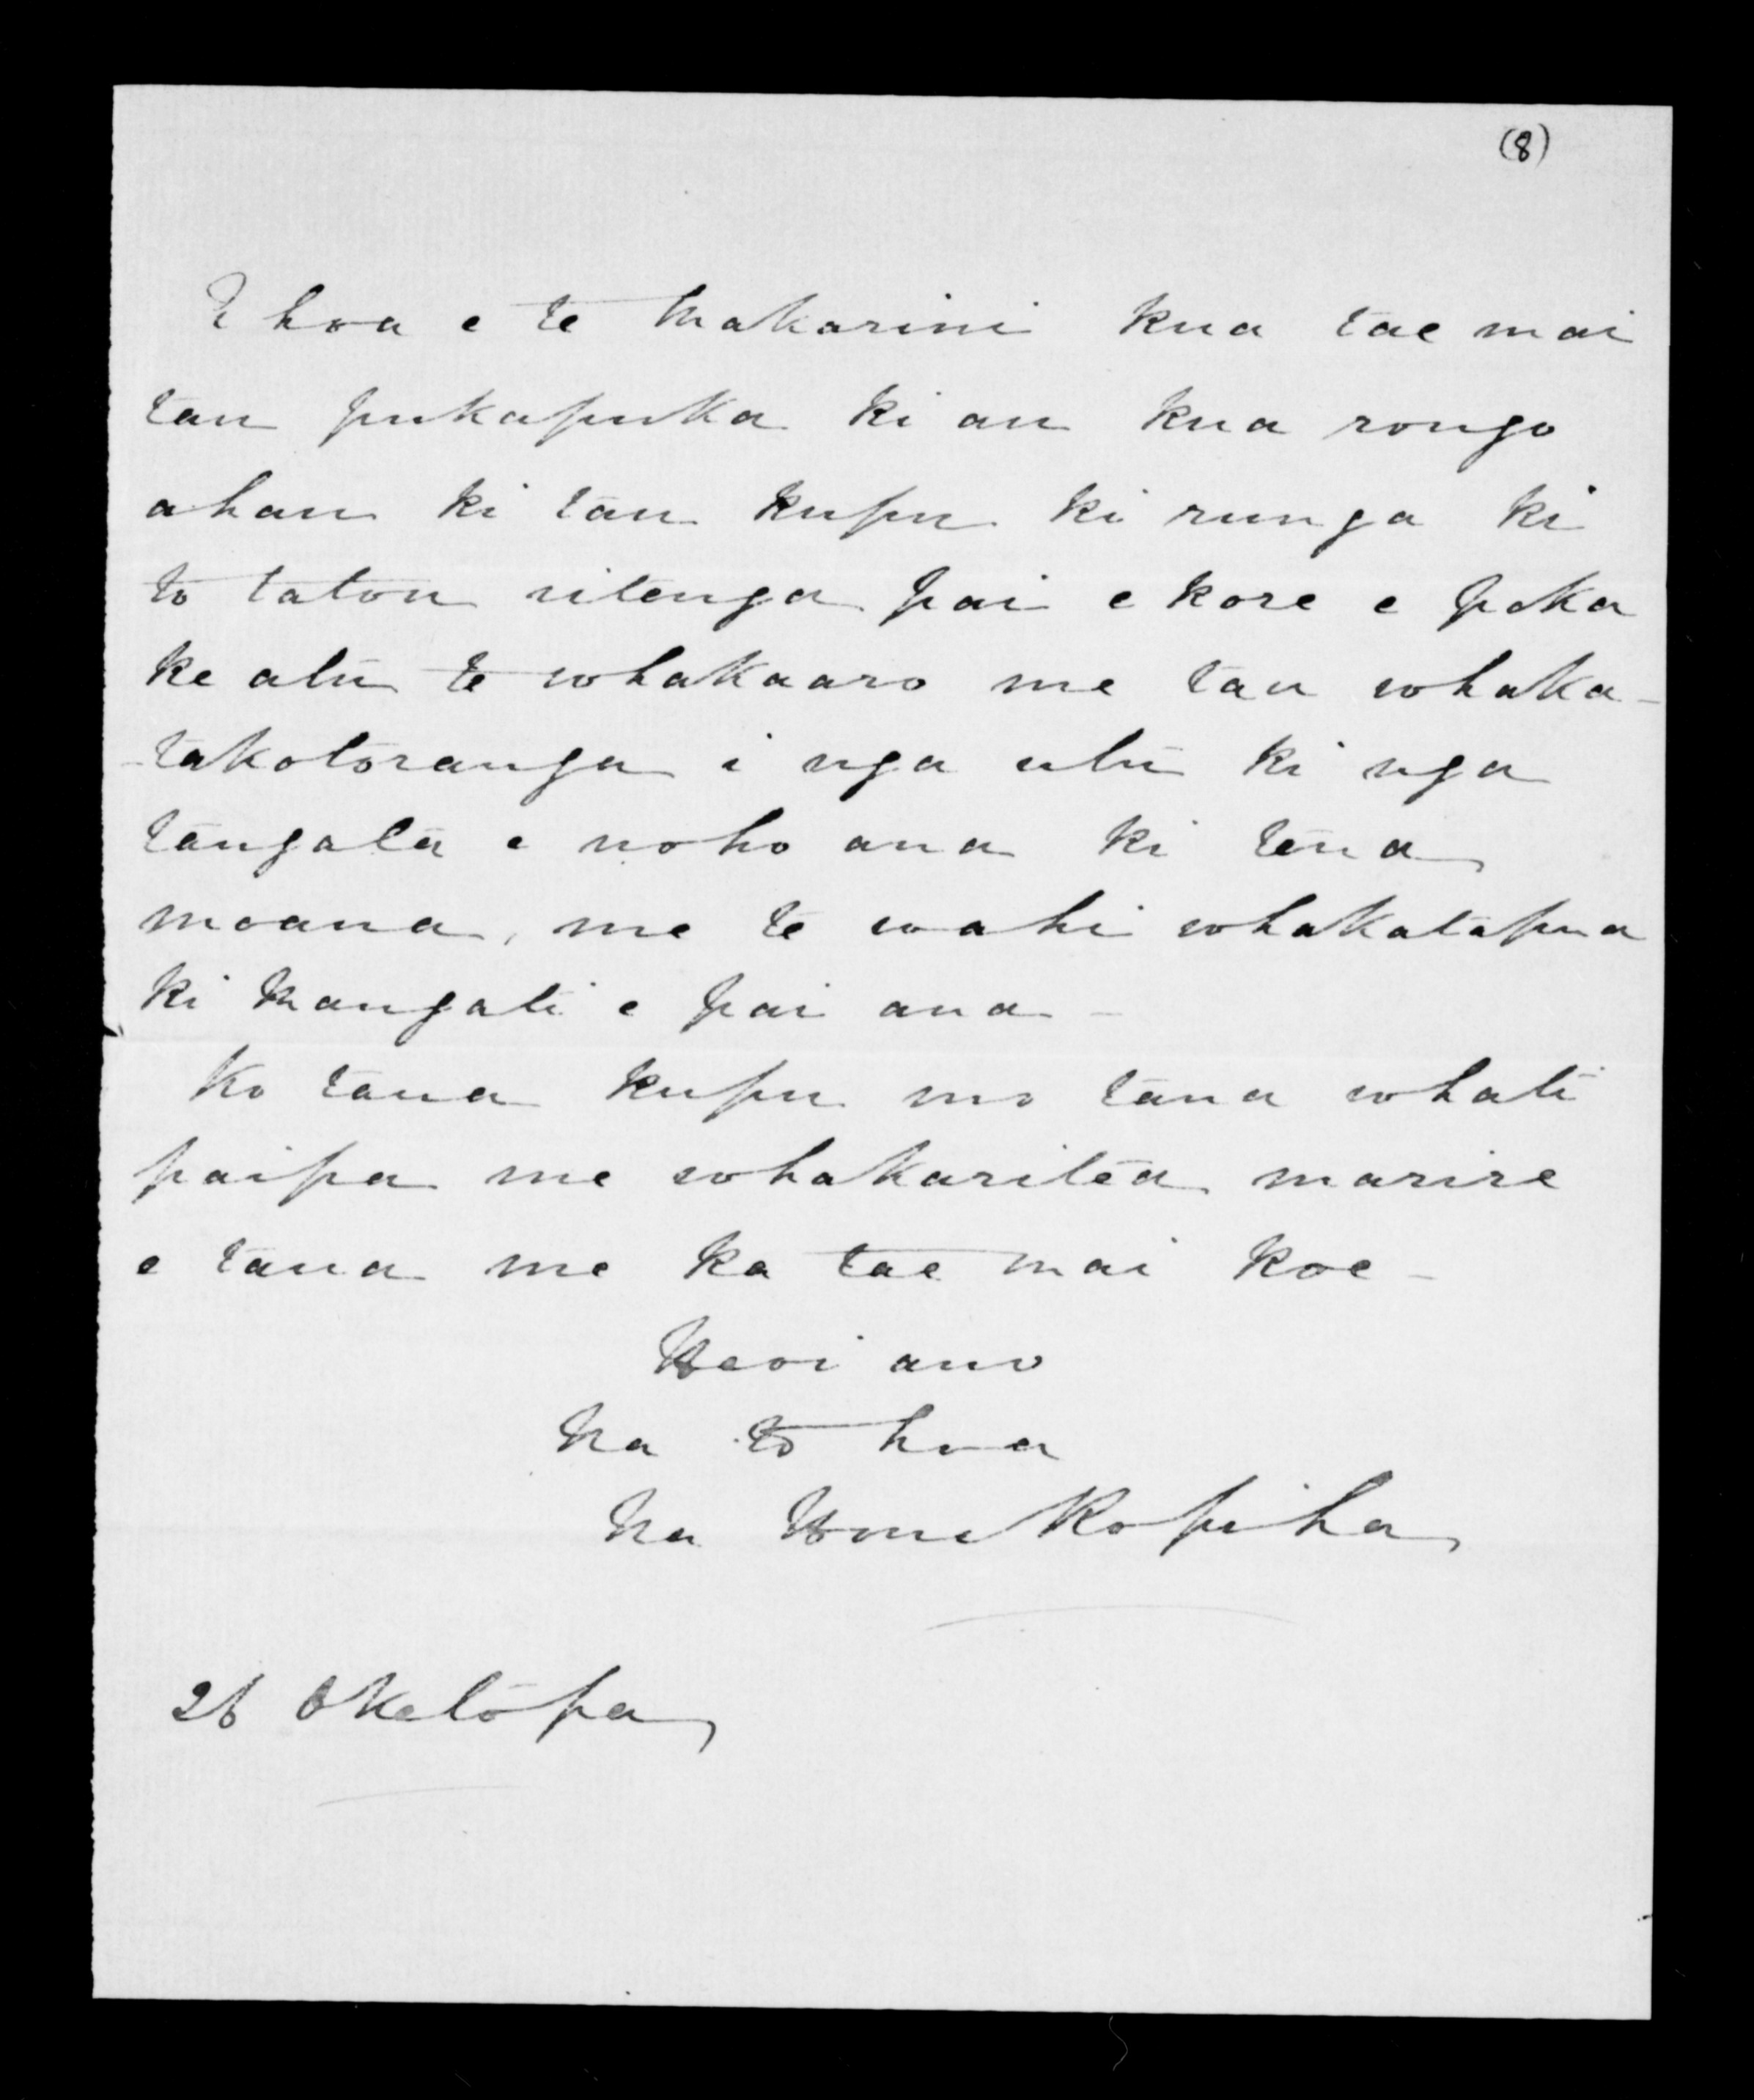 (8)
E hoa e te Makarini kua tae mai
tau pukapuka ki au kua rongo
ahau ki tau kupu ki runga ki
to tatou ritenga pai e kore e poka
ke atu te whakaaro me tau whaka-
-takotoranga i nga utu ki nga
tangata e noho ana ki tena
moana, me te wahi whakatapua
ki Mangati e pai ana -
Ko tana kupu mo tana whati
paipa me whakaritea marire
e tana me ka tae mai koe -
Heoi ano
Na to hoa
Na Hone Ropiha
26 Oketopa